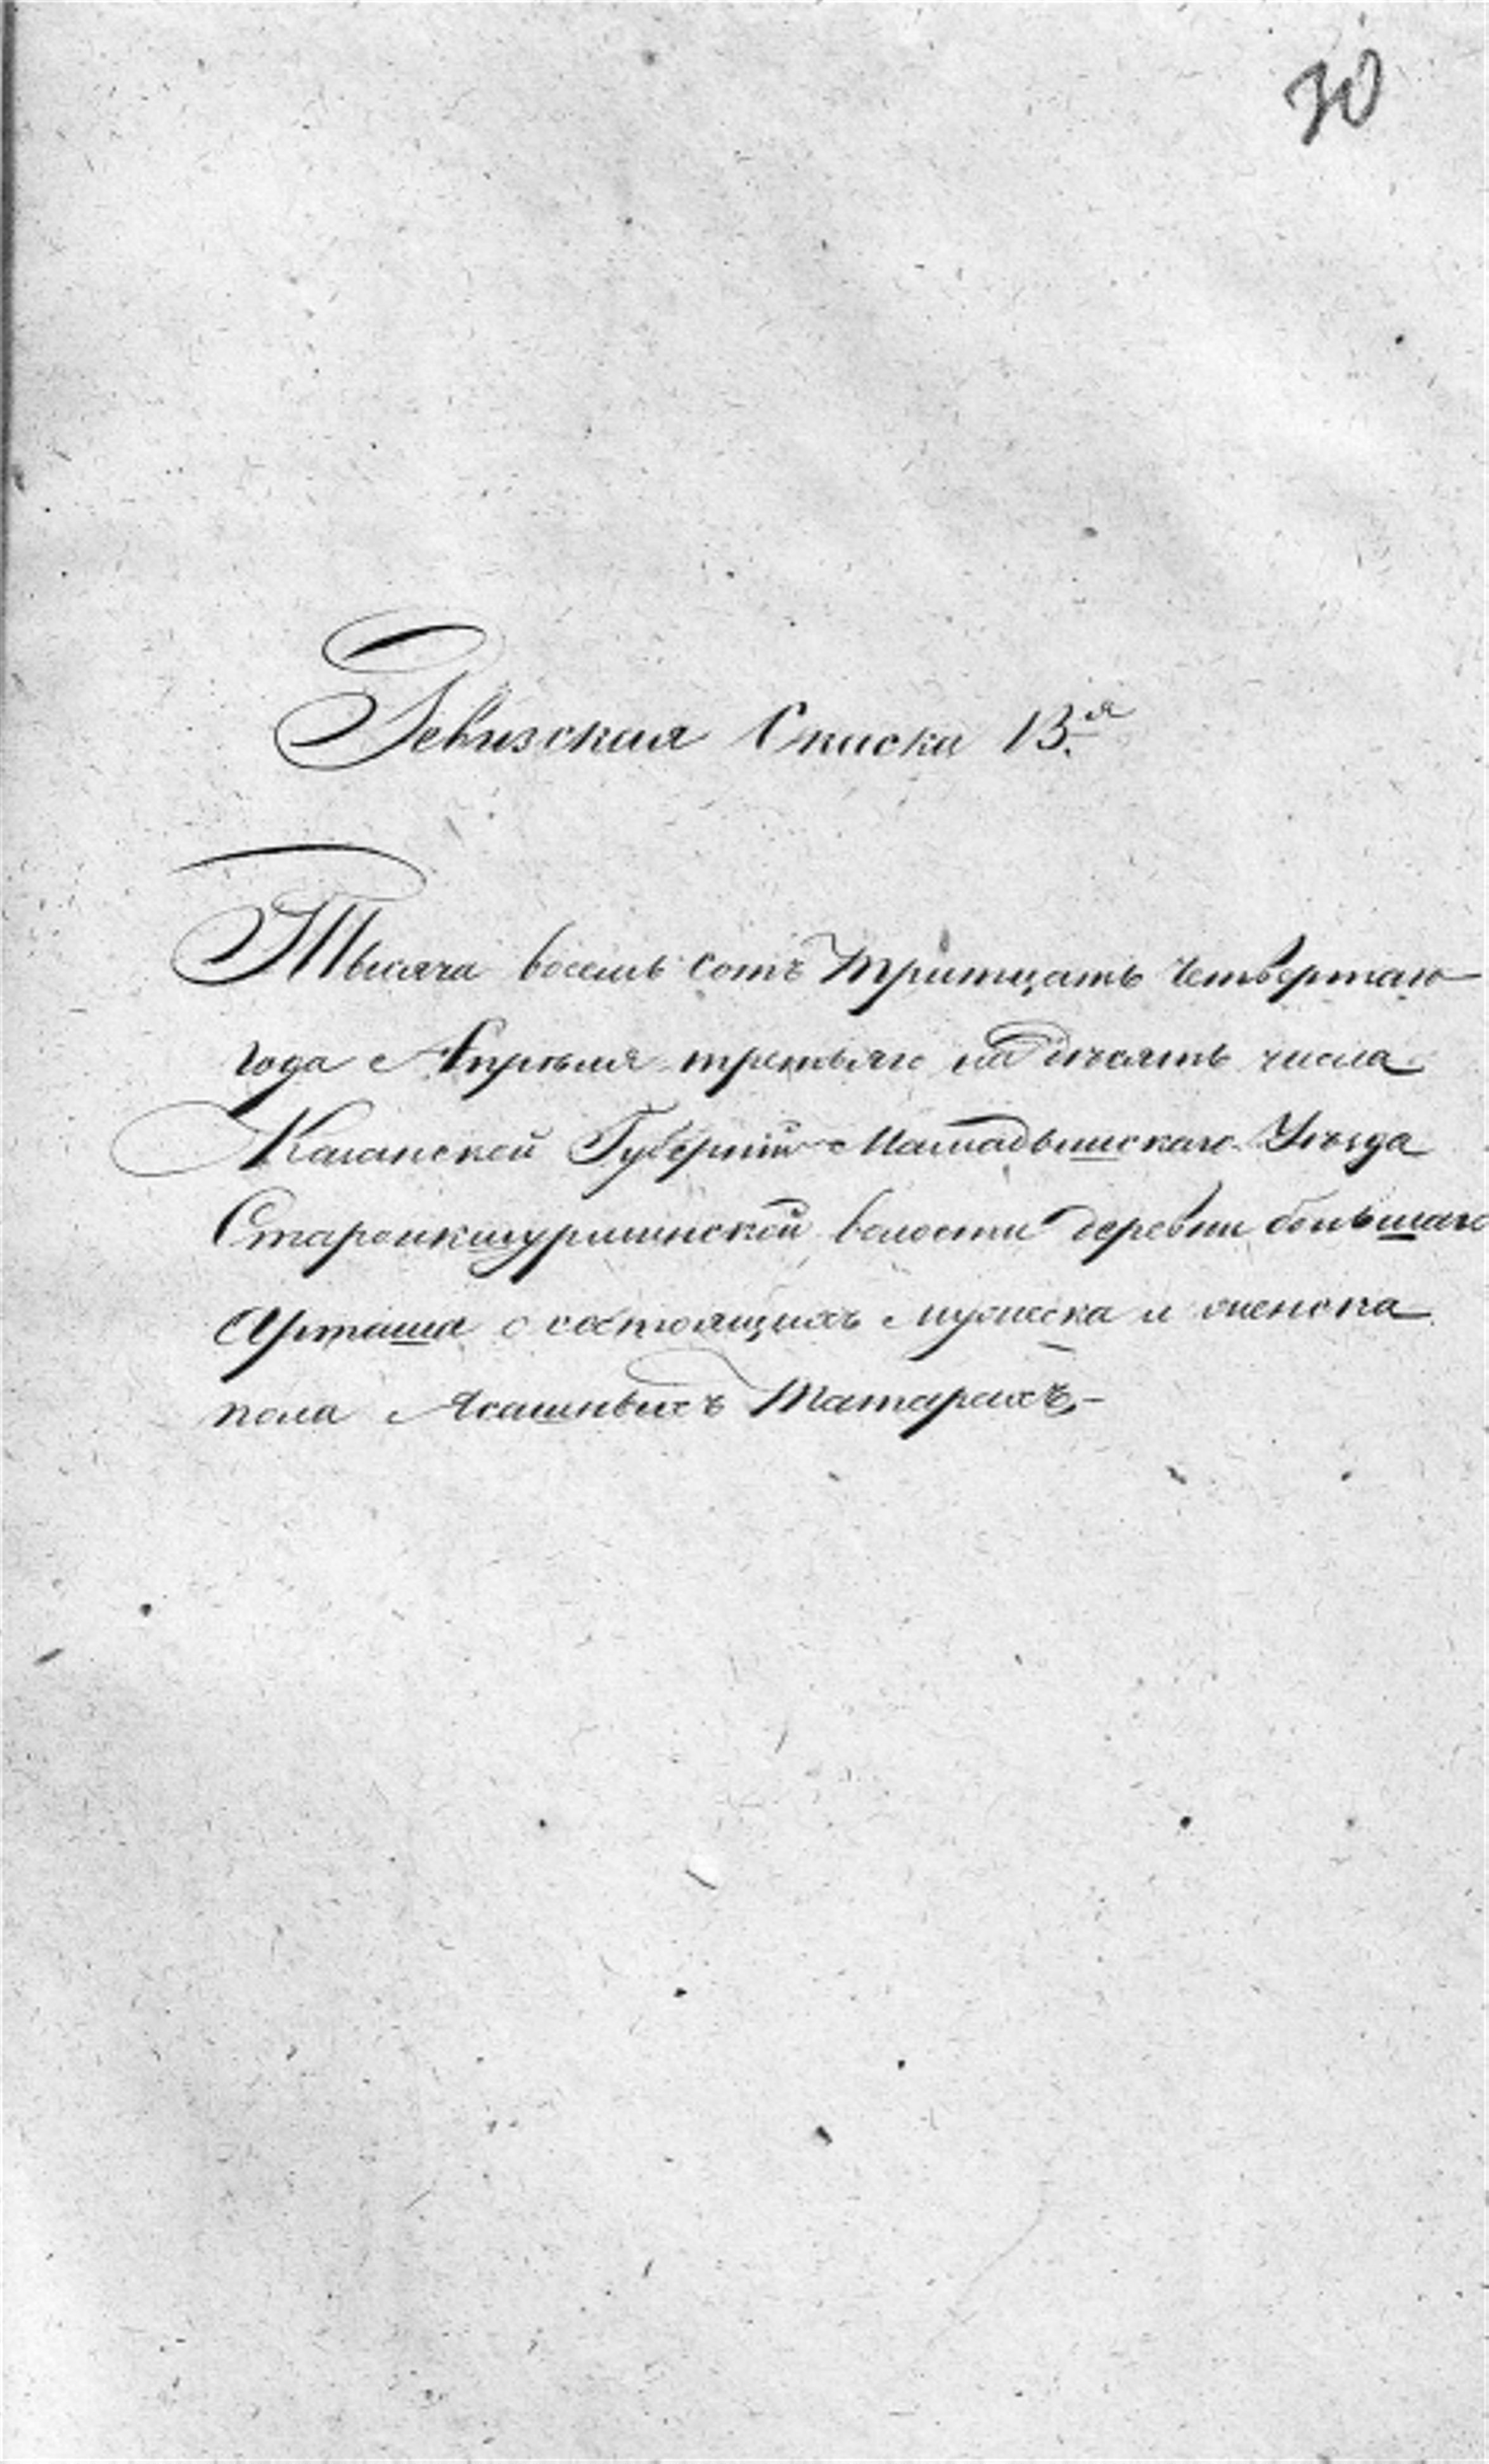 30
Ревизская Скаска 13.я
Тысяча восемь сотъ тритцать четвертаго
года Апреля третьяго на десять числа
Казанской Губерніи Мамадышскаго Уезда
Староикшурминской волости деревни большаго
Арташа о состоящихъ мужеска и женска
пола Ясашныхъ Татарахъ,-